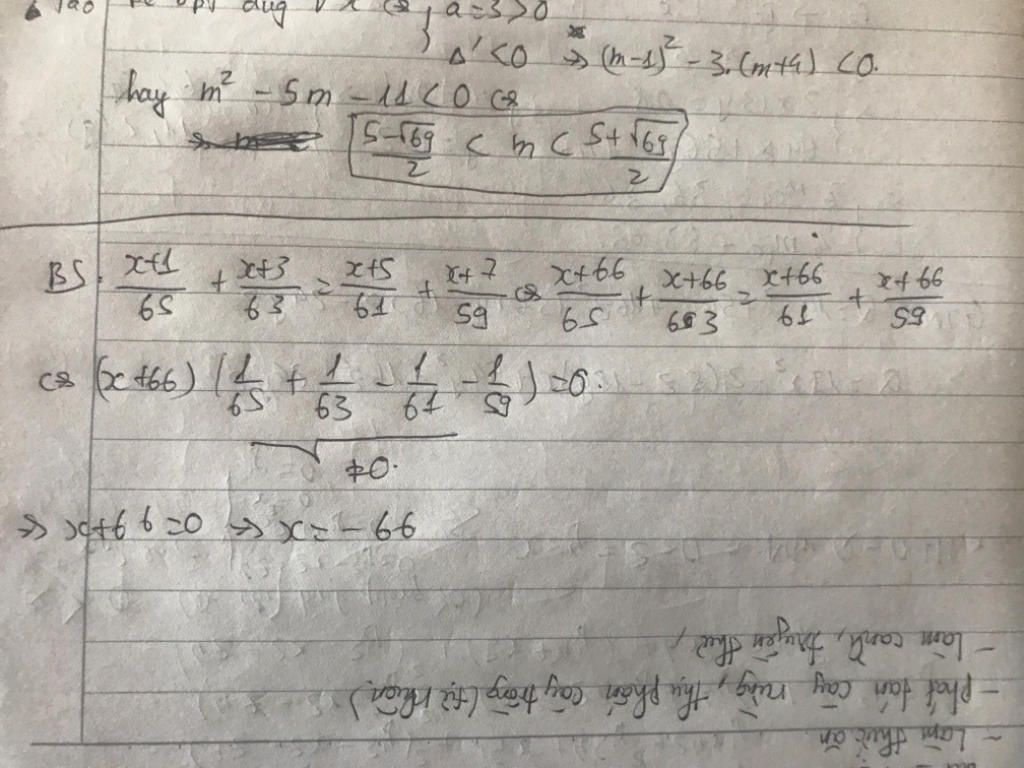 a = 3 > 0
Δ' < 0 => (m-1)² - 3.(m+4) < 0.
hay m² - 5m - 11 < 0 <=>
(5-√69)/2 < m < (5+√69)/2
B5. (x+1)/65 + (x+3)/63 = (x+5)/61 + (x+7)/59 <=> (x+66)/65 + (x+66)/63 = (x+66)/61 + (x+66)/59
<=> (x+66) (1/65 + 1/63 - 1/61 - 1/59) = 0.
≠0.
=> x+66=0 => x = -66
- Làm thức ăn
- phát tán cây rừng, thụ phấn cây trồng (tự nhiên)
- Làm cảnh, truyền thư,